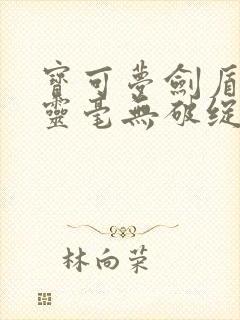 寶可夢劍盾
靈毫無破綻
林向荣